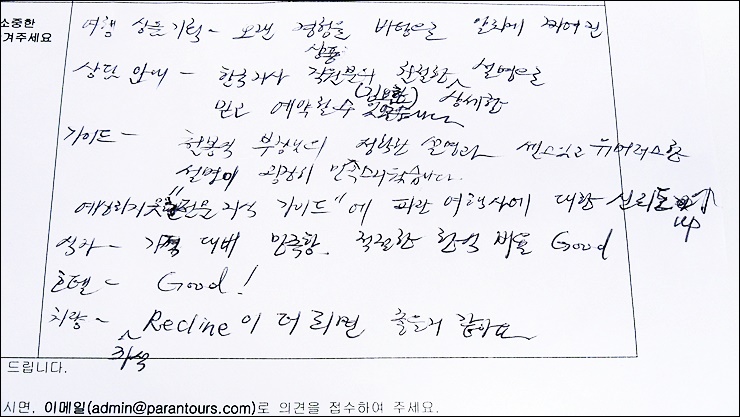 소중한
겨주세요
여행 상품기획 - 오랜 경험을 바탕으로 알차게 짜여진
상품
상담 안내 - 한국지사 직원분의 친절한 설명으로
상세한
믿고 예약할 수 있었습니다
가이드 - 천봉익 부장님의 정확한 설명과 센스있고 유머러스한
설명이 굉장히 만족스러웠습니다.
예상하지 못한 "전문지식 가이드"에 파란여행사에 대한 신뢰도 ↑
up
식사 - 가격 대비 만족함. 적절한 한식 비율 Good
호텔 - Good!
차량 - Recline이 더 되면 좋을거 같아요
좌석
드립니다.
시면, 이메일(admin@parantours.com)로 의견을 접수하여 주세요.